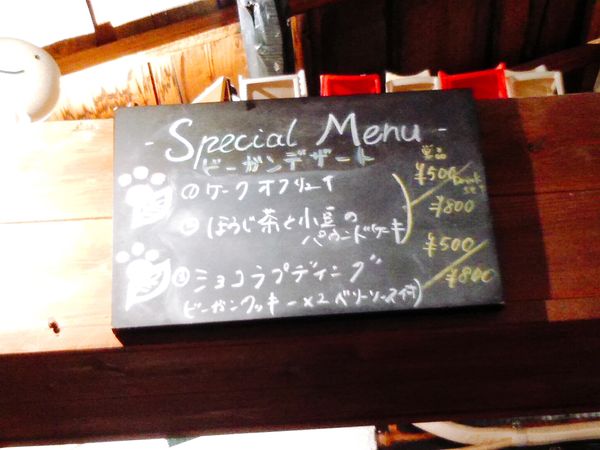 - Special Menu -
ビーガンデザート
単品
① ケークオフリュイ ¥500
¥800
② ほうじ茶と小豆の
パウンドケーキ
¥500
③ ショコラプディング ¥800
ビーガンクッキー×2 ベリーソース付)